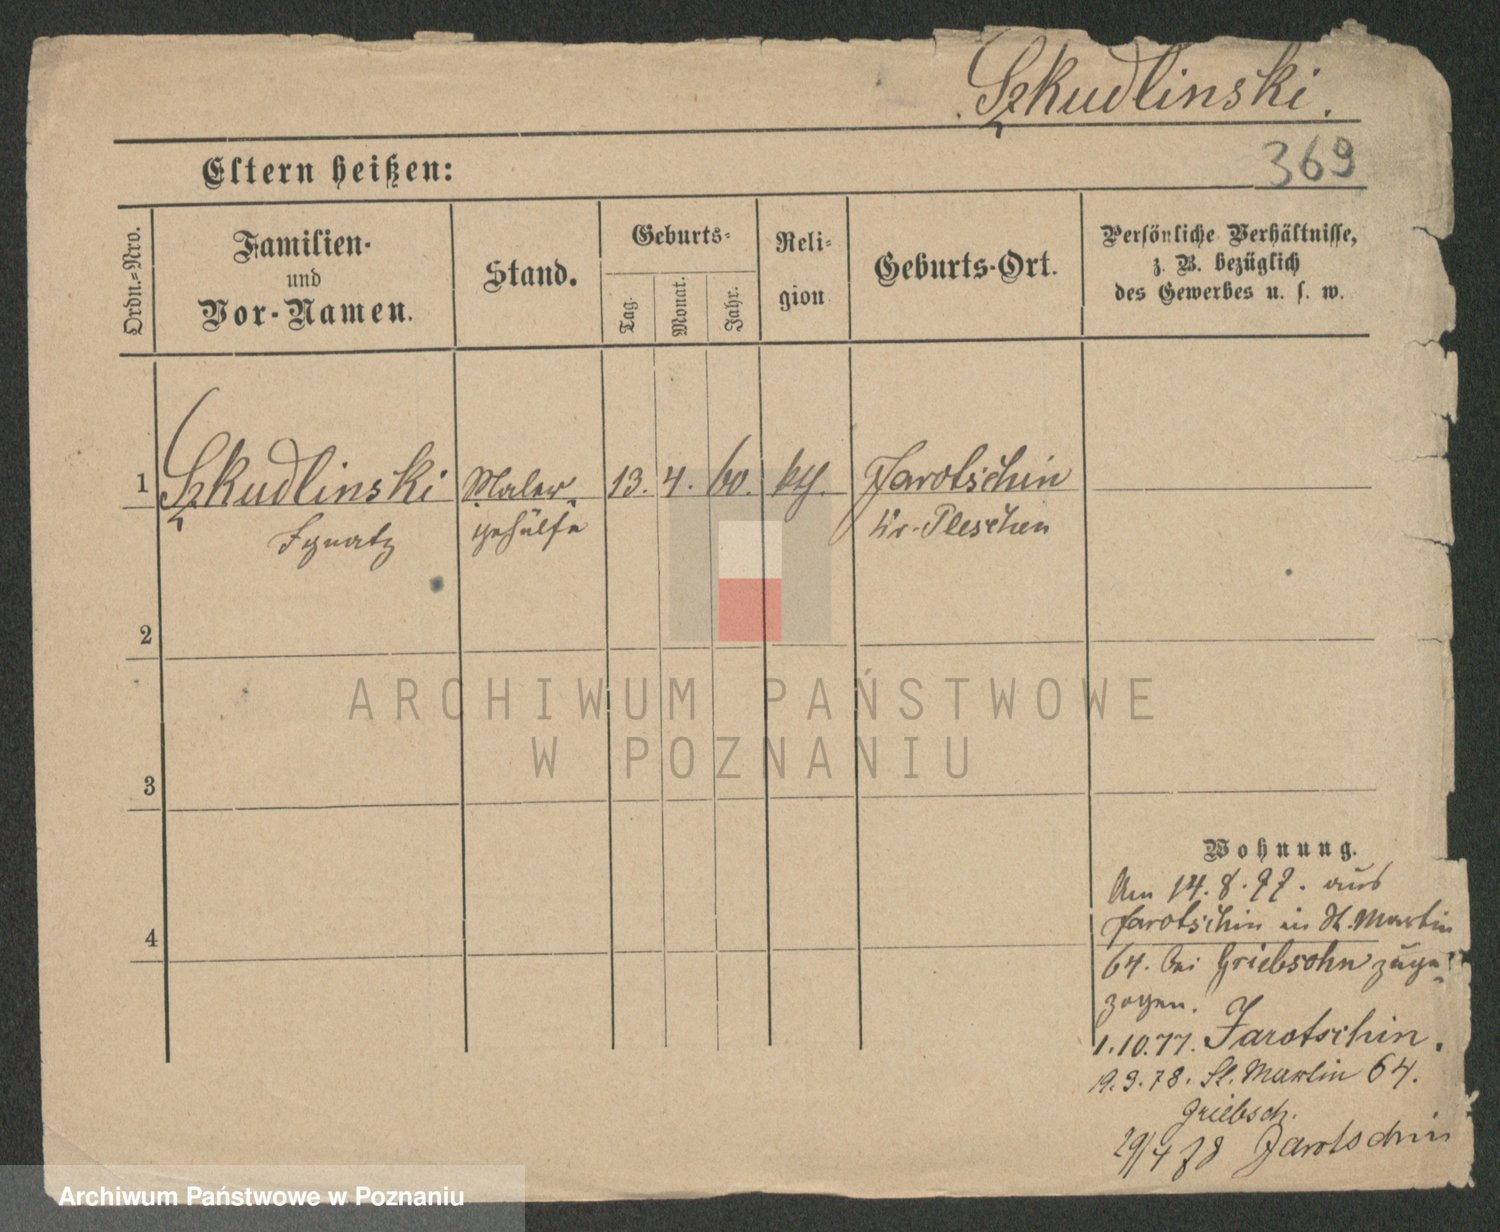 Szkudlinski.
369
Eltern heißen:
Ordn.-Nro.
Familien-
und
Vor-Namen.
Stand.
Geburts-
Tag.
Monat.
Jahr.
Reli-
gion
Geburts-Ort.
Persönliche Verhältnisse,
z. B. bezüglich
des Gewerbes u. s. w.
1 Szkudlinski Maler- 13. 4. 60. kth. Jarotschin
Ignatz gehülfe Kr. Pleschen
2
3
4
ARCHIWUM PAŃSTWOWE
W POZNANIU
Wohnung.
Am 14. 8. 77. aus
Jarotschin in St. Martin
64. bei Griebsohn zuge-
zogen.
1. 10. 77. Jarotschin.
19. 9. 78. St. Martin 64.
Griebsch.
29/4 78 Jarotschin
Archiwum Państwowe w Poznaniu